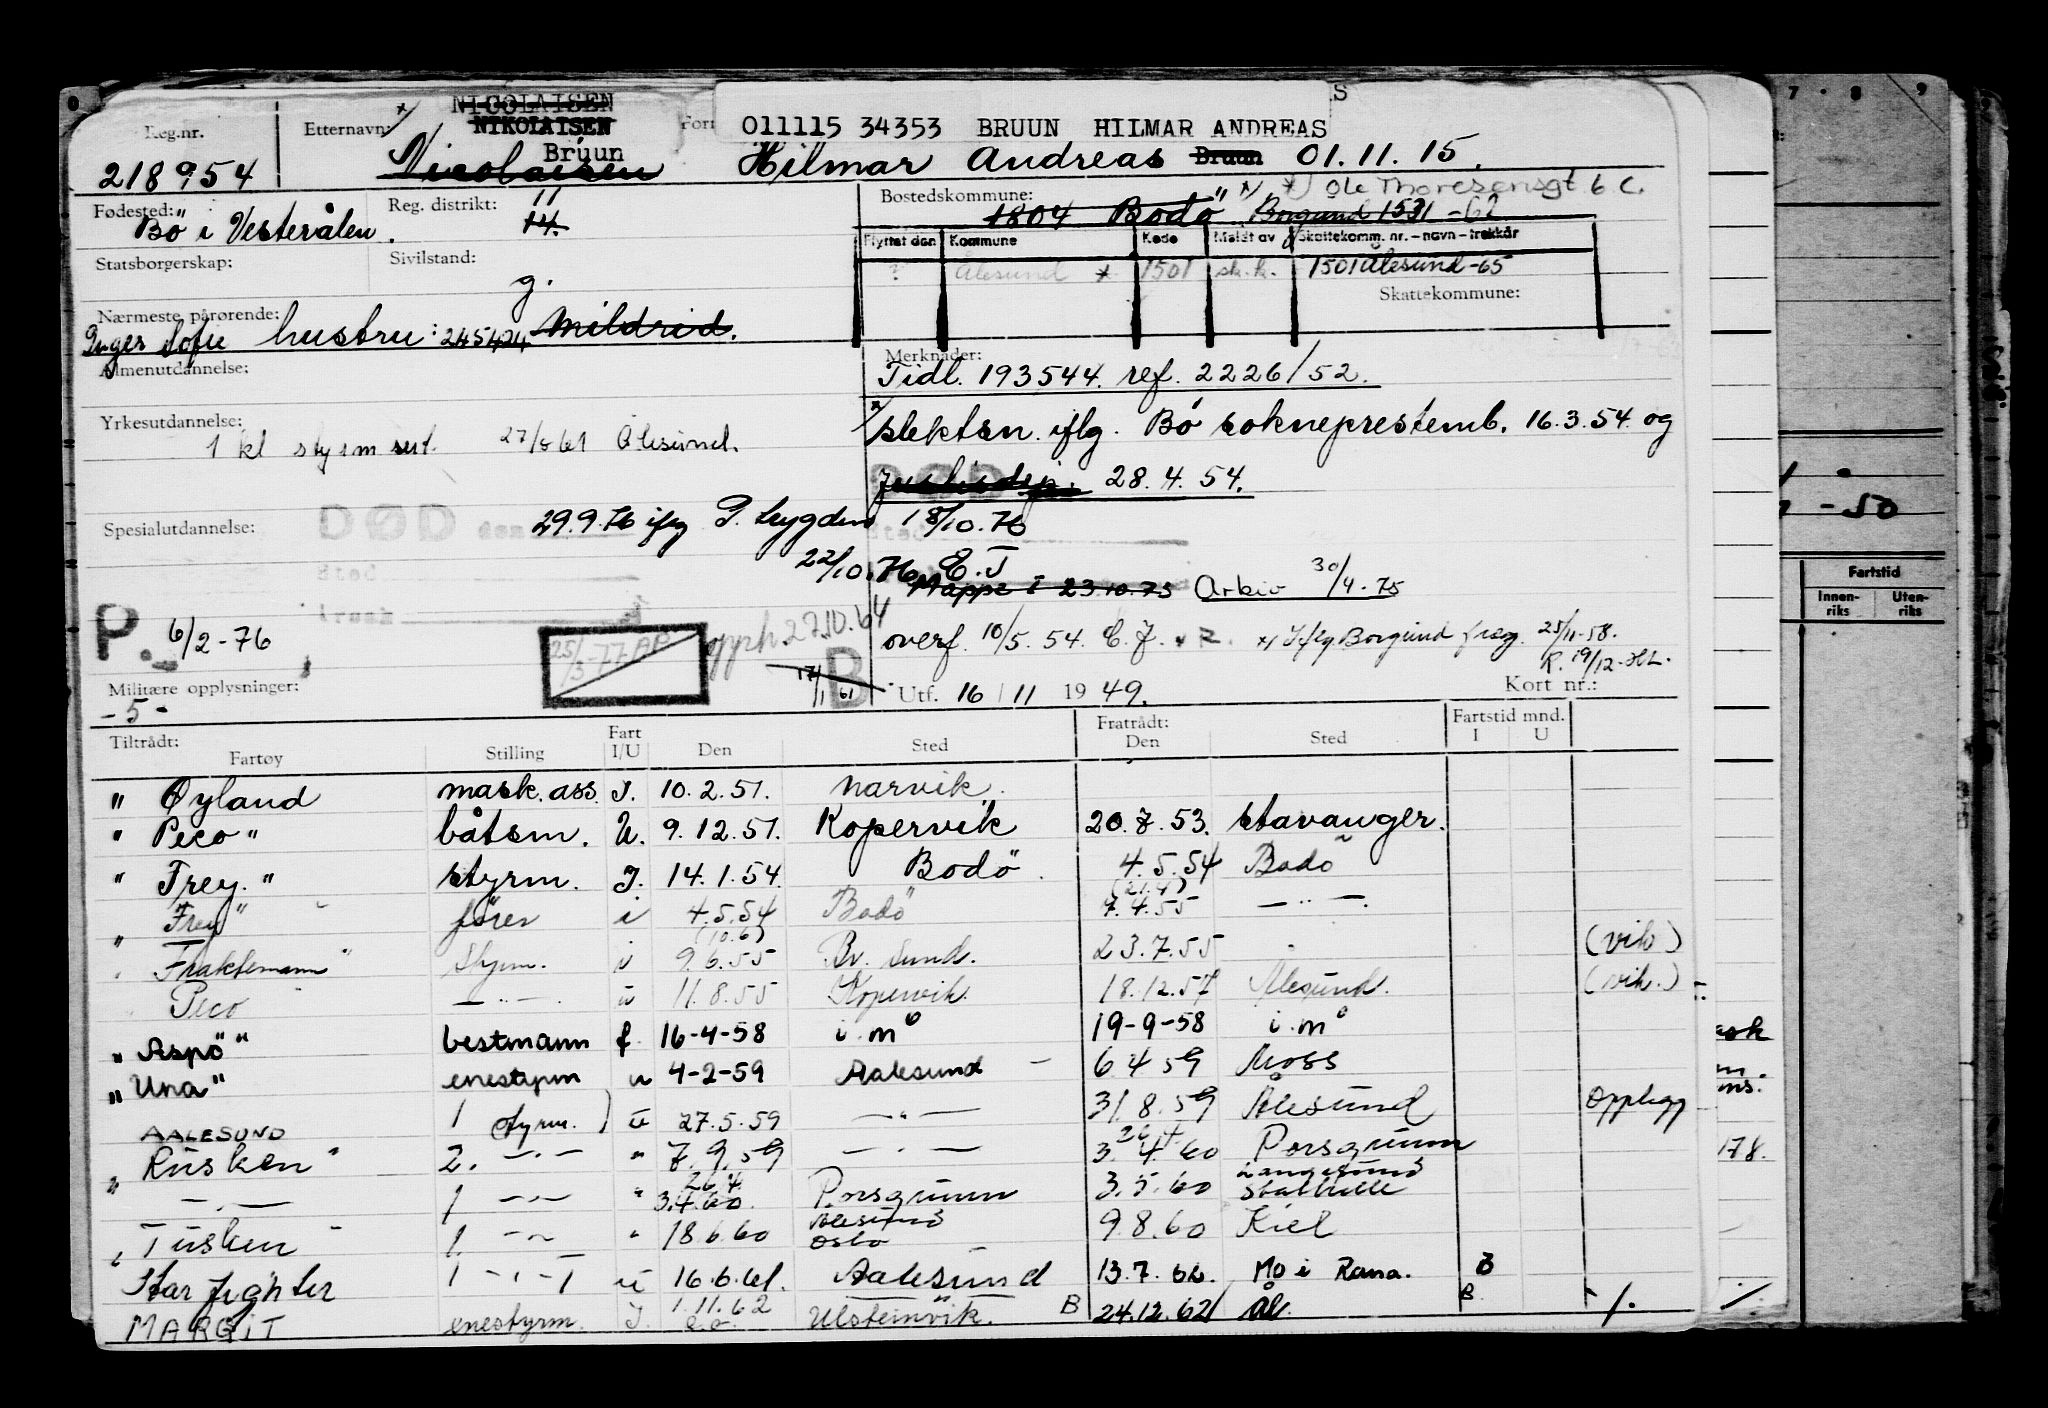 NICOLAISEN
Reg.nr. Etternavn: NIKOLAISEN 011115 34353 BRUUN HILMAR ANDREAS
Bruun
218954 Nicolaisen Hilmar Andreas Bruun 01.11.15.
Fødested: Reg. distrikt: 11 Bostedskommune: Ole Thoresensgt 6 C.
Bö i Vesterålen. 14. 1804 Bodö Borgund 1531-62
Flyttet den Kommune Kode Meldt av Skattekomm. nr. - navn - trekkår
Statsborgerskap: Sivilstand:
? Ålesund 1501 sk.k. 1501 Ålesund-65
g. Skattekommune:
Nærmeste pårørende:
Inger Sofie hustru: 245424 Mildrid.
Almenutdannelse: Merknader:
Tidl. 193544. ref. 2226/52.
Yrkesutdannelse:
slektsn. iflg. Bö sokneprestemb. 16.3.54 og
1 kl styrm sert. Ålesund.
Justisdep. 28.4.54.
Spesialutdannelse: DØD den 29.9.76 iflg 18/10.76
Sted
22/10.76 E.J
Mappe i 23.10.75 Arkiv 30/4.75
Årsak
P. 6/2-76
25/3-77 AP opph. 27.10.64
overf. 10/5.54. E.J. x/ Iflg Borgund freg. 25/11-58.
R. 19/12-
Militære opplysninger: 17/1 61 B Utf. 16/11 1949. Kort nr.:
-5-
Tiltrådt: Fratrådt: Fartstid mnd.
Fartøy Stilling Fart I/U Den Sted Den Sted I U
" Øyland mask.ass. I. 10.2.51. Narvik.
" Peco " båtsm. U. 9.12.51. Kopervik 20.7.53. Stavanger.
" Frey. " styrm. I. 14.1.54. Bodö. 4.5.54 Bodö
(21.4)
" Frey " förer i 4.5.54 Bodö 7.4.55 — " —.
(10.6)
" Fraktemann " Styrm. i 9.6.55 Br. sund. 23.7.55 (vik)
" Peco " — " — u 11.8.55 Kopervik. 18.12.57 Ålesund. (vik.)
" Aspö " bestmann f. 16-4-58 i.m° 19-9-58 i.m°
" Una " enestyrm u 4-2-59 Aalesund 6 4 59 Moss
AALESUND 1 styrm. u 27.5.59 — " — 31.8.59 Ålesund Opplegg
" Rusken " 2. — " — " 7.9.59 — " — 3.4.60 Porsgrunn
26.4
— " — 1 — " — " 3.4.60. Porsgrunn 3.5.60 Langesund Stathelle
" Tusken 1. — " — " 18.6.60 Ålesund Oslo 9.8.60 Kiel
Star fighter 1 — " — u 16.6.61. Aalesund 13.7.62. Mo i Rana. B
MARGIT enestyrm. I. 1.11.62 Ulsteinvik. B 24.12.62 Ål. B
7 . 8 9
- 50
Fartstid
Innenriks Utenriks
178.